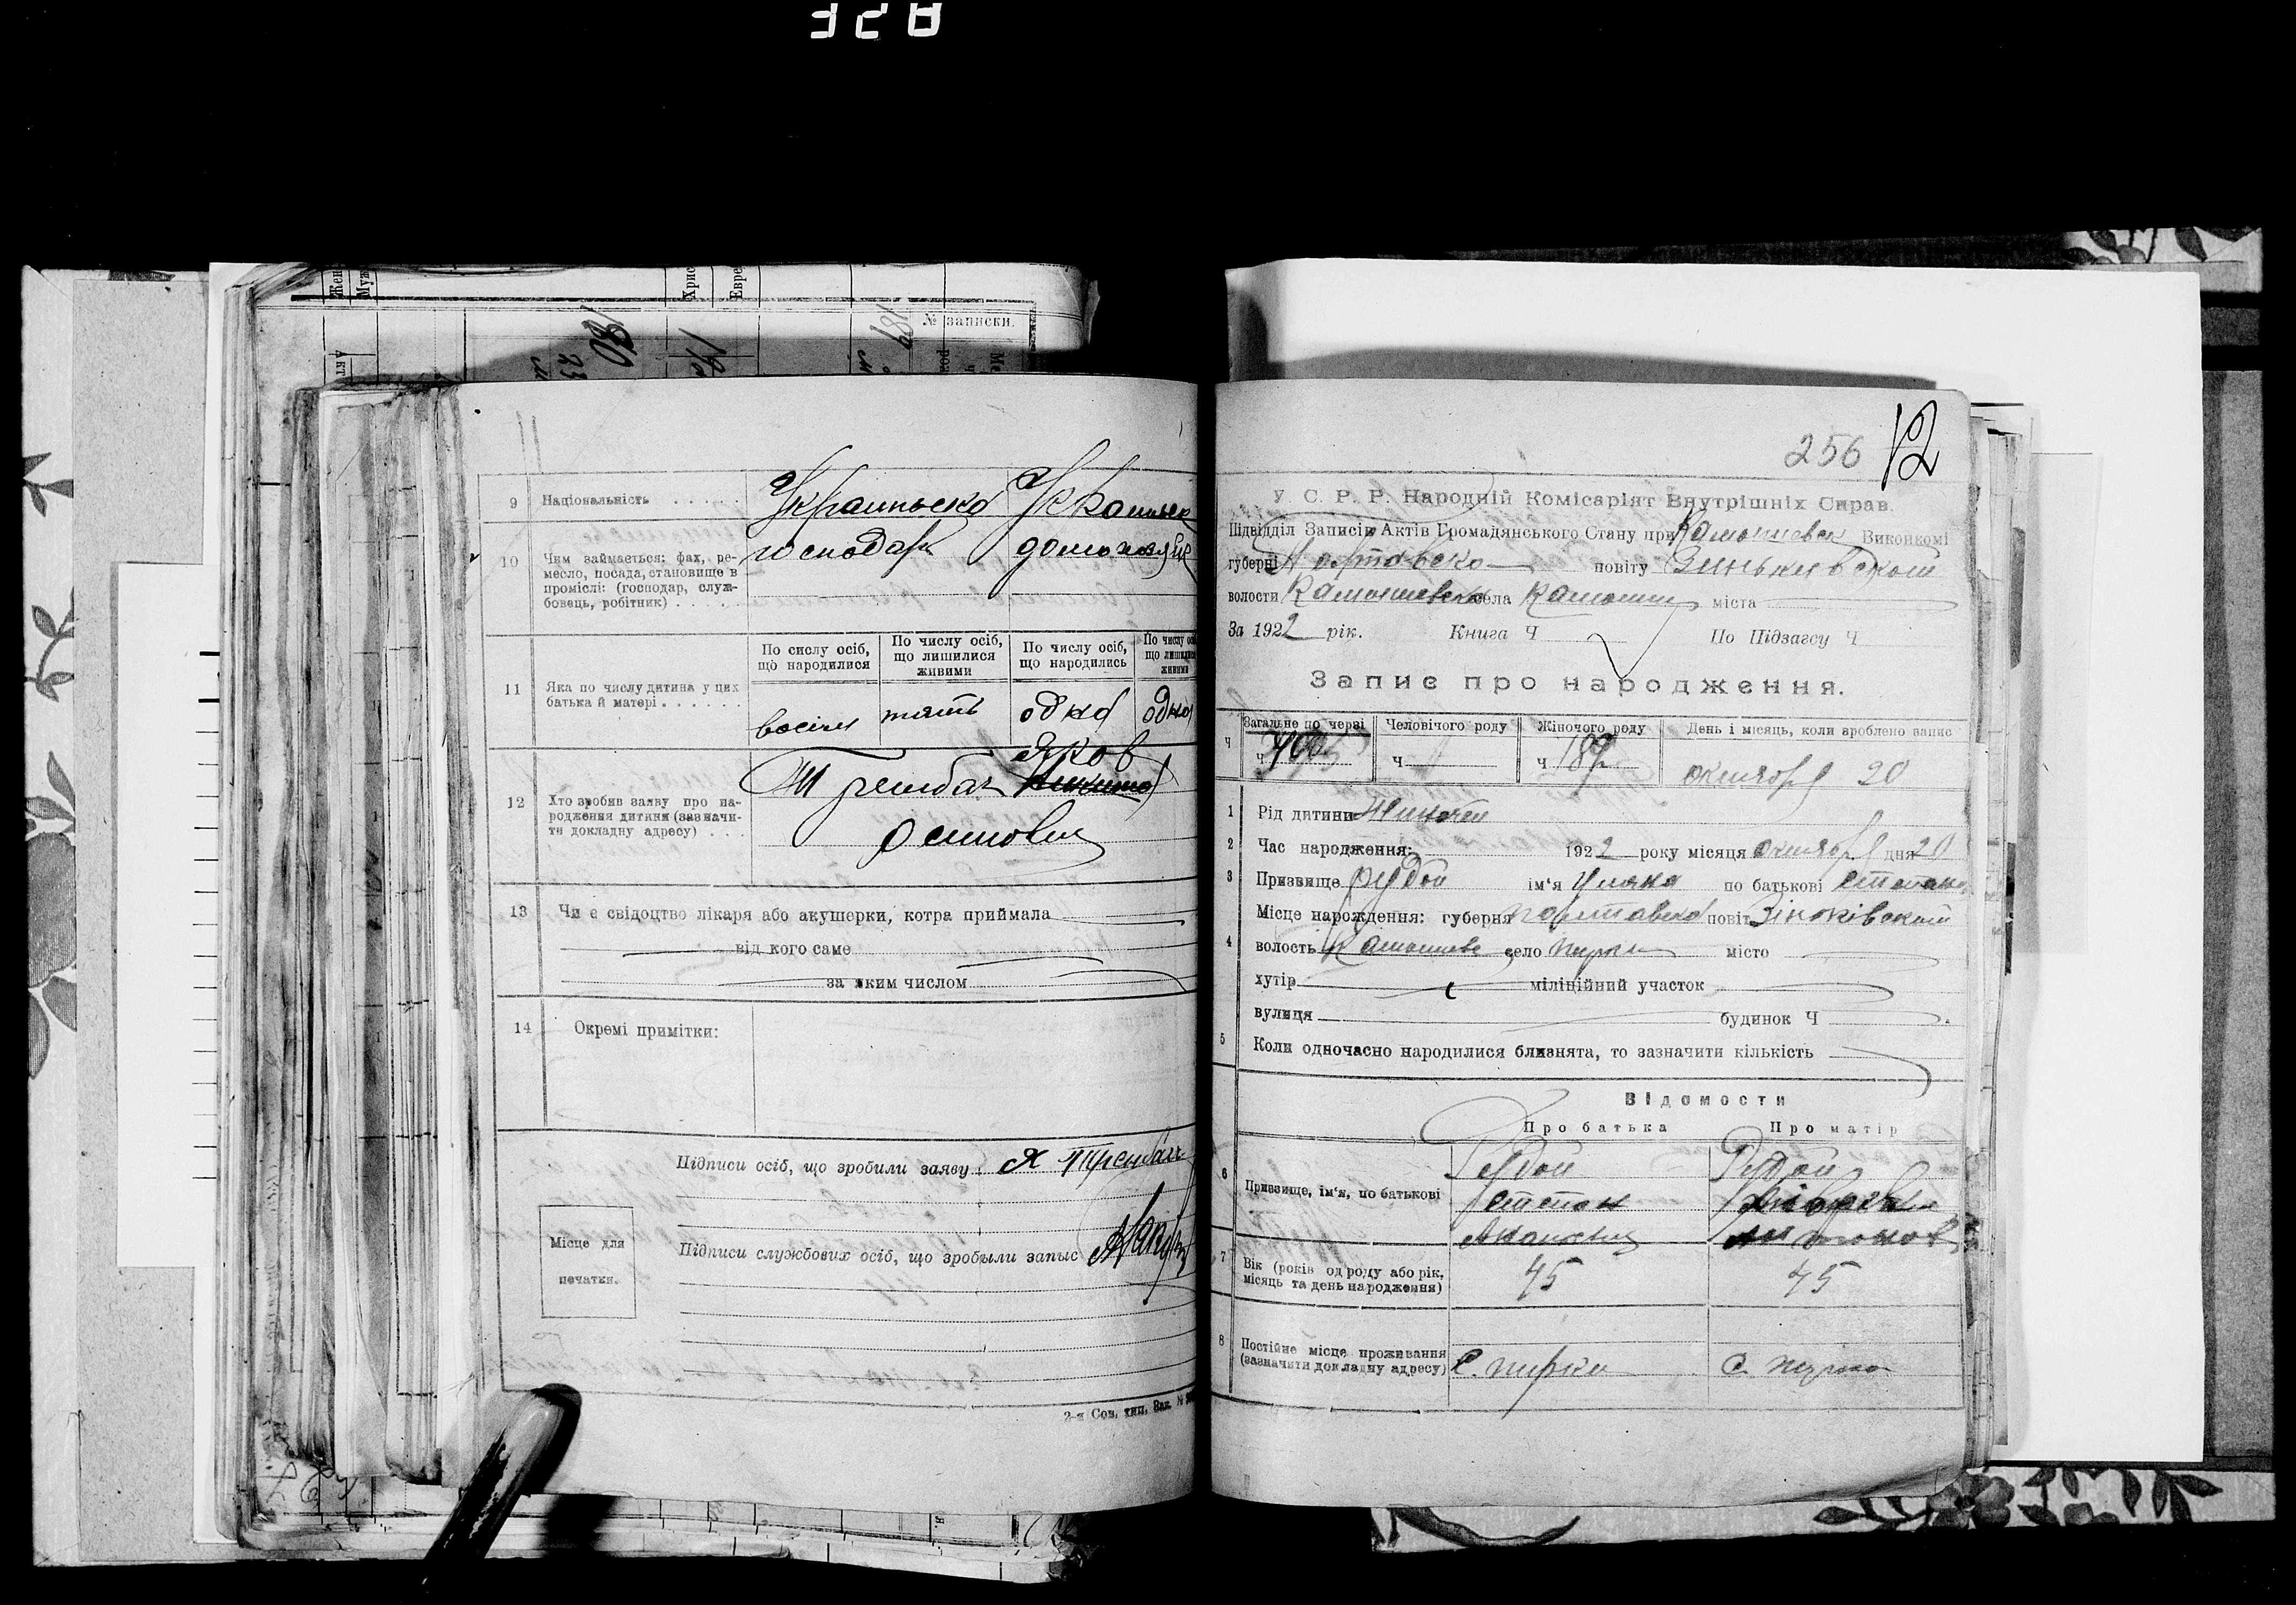 328
Жен
Муж
Хрис
Евре
№ записки.
180
23
189
9 Національність . . . . .
Украинська
10 Чим займається: фах, ре-
месло, посада, становище в
проміслі: (господар, служ-
бовець, робітник) . . . .
господарь
По сислу осіб,
що народилися
По числу осіб,
що лишилися
живими
По числу осіб,
що народились
По числу осі
що лишилис
живими
11 Яка по числу дитина у цих
батька й матері . . . . . .
восім пять одна одна
12 Хто зробив заяву про на-
родження дитини (зазначи-
ти докладну адресу) . . .
Яков
Осипович
13 Чи є свідоцтво лікаря або акушерки, котра приймала
від кого саме
за яким числом
14 Окремі примітки:
Підписи осіб, що зробили заяву Я Трембач
Місце для
печатки.
Підписи службових осіб, що зробыли запыс
2-я Сов. тип. Зак. №
256 12
У. С. Р. Р. Народній Комісаріят Внутрішніх Справ.
Підвідділ Записів Актів Громадянського Стану при Камышевск Виконкомі
губерні Полтавско повіту Зинькивском
волости Камышевско села Камыши міста
За 1922 рік. Книга Ч По Підзагсу Ч
Запис про народження.
Загальне по черзі
Человічого роду
Жіночого роду
День і місяць, коли зроблено запис
ч ч ч ч 189 октября 20
1 Рід дитини Жиночей
2 Час народження: 1922 року місяця октября дня 20
3 Призвище Рудой ім'я Уляна по батькові Степано
Місце нарождення: губерня Полтавска повіт Зіньківском
4 волость Камышевс село Пирки місто
хутір міліційний участок
вулиця будинок Ч
5 Коли одночасно народилися близнята, то зазначити кількість
Відомости
Про батька Про матір
6 Призвище, ім'я, по батькові
Рудой Рудой
Степан
7 Вік (років од роду або рік,
місяць та день народження)
45 45
8 Постійне місце проживання
(зазначити докладну адресу)
С. Пирки С. Пирки